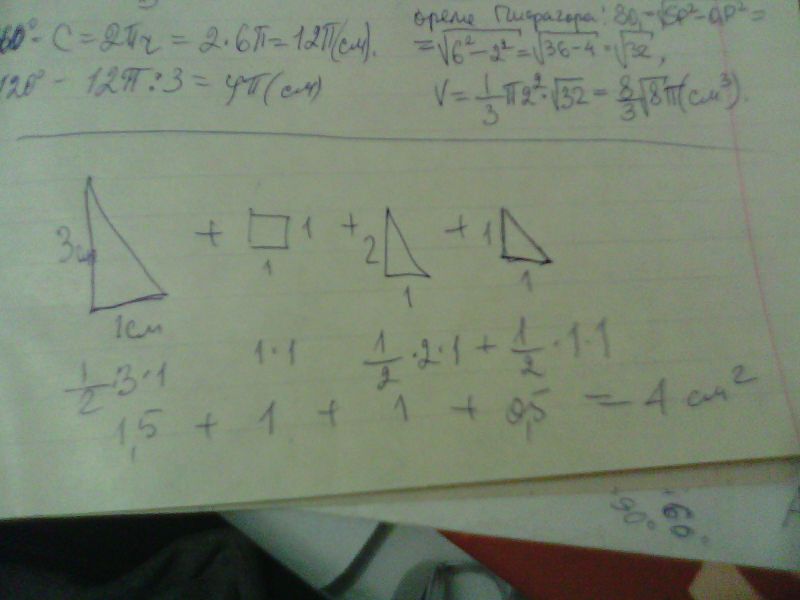 360° - C = 2πr = 2·6π = 12π (см).
120° - 12π : 3 = 4π (см)
ореме Пифагора: SO₁ = √SP² - O₁P² =
= √6² - 2² = √36 - 4 = √32,
V = 1/3 π2²·√32 = 8/3 √8π (см³).
3см + 1 + 2 + 1
1см 1 1 1
1/2·3·1 1·1 1/2·2·1 + 1/2·1·1
1,5 + 1 + 1 + 0,5 = 4 см²
90° 60°